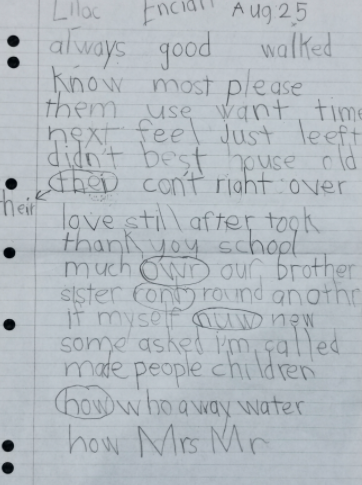 Lilac Encian Aug 25
always good walked
know most please
them use want time
next feel just leeft
didn't best house old
thei con't right over
their
love still after took
thank you school
much owr our brother
sister ont round anothr
if myself nuw new
some asked I'm called
made people children
how who away water
how Mrs Mr